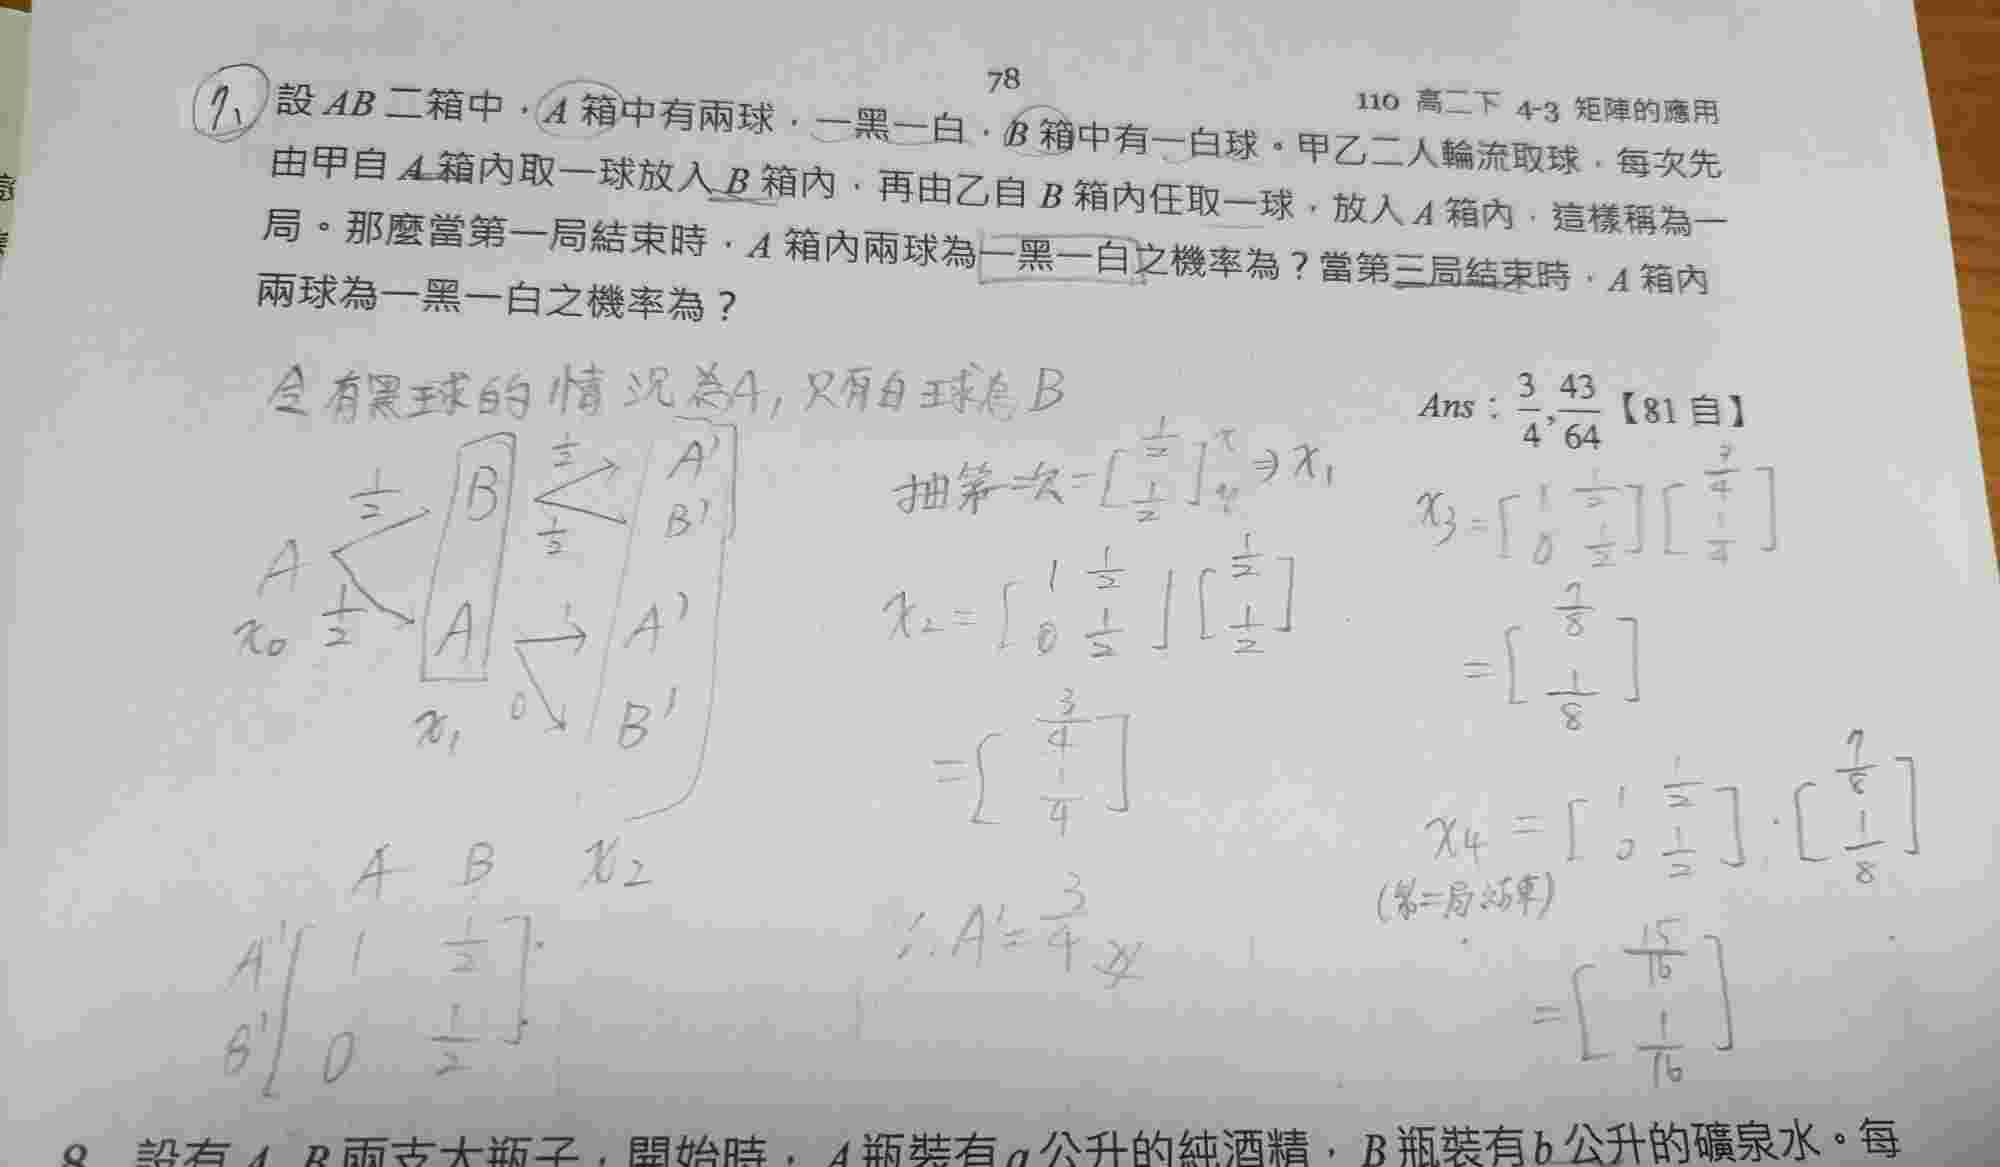 78
110 高二下 4-3 矩陣的應用
7. 設 AB 二箱中，A 箱中有兩球，一黑一白，B 箱中有一白球。甲乙二人輪流取球，每次先
由甲自 A 箱內取一球放入 B 箱內，再由乙自 B 箱內任取一球，放入 A 箱內，這樣稱為一
局。那麼當第一局結束時，A 箱內兩球為一黑一白之機率為？當第三局結束時，A 箱內
兩球為一黑一白之機率為？
Ans：3/4, 43/64【81 自】
令有黑球的情況為A, 只有白球為B
A x₀ 1/2 1/2
B A x₁
1/2 1/2 1 0
A' B' A' B' x₂
A B
A' [1 1/2]
B' [0 1/2]
抽第一次=[1/2 1/2] ⇒ x₁
x₂=[1 1/2 0 1/2][1/2 1/2]
=[3/4 1/4]
∴ A'=3/4
x₃=[1 1/2 0 1/2][3/4 1/4]
=[7/8 1/8]
x₄=[1 1/2 0 1/2]·[7/8 1/8]
(第二局結束)
=[15/16 1/16]
8. 設有 A, B 兩支大瓶子，開始時，A 瓶裝有 a 公升的純酒精，B 瓶裝有 b 公升的礦泉水。每